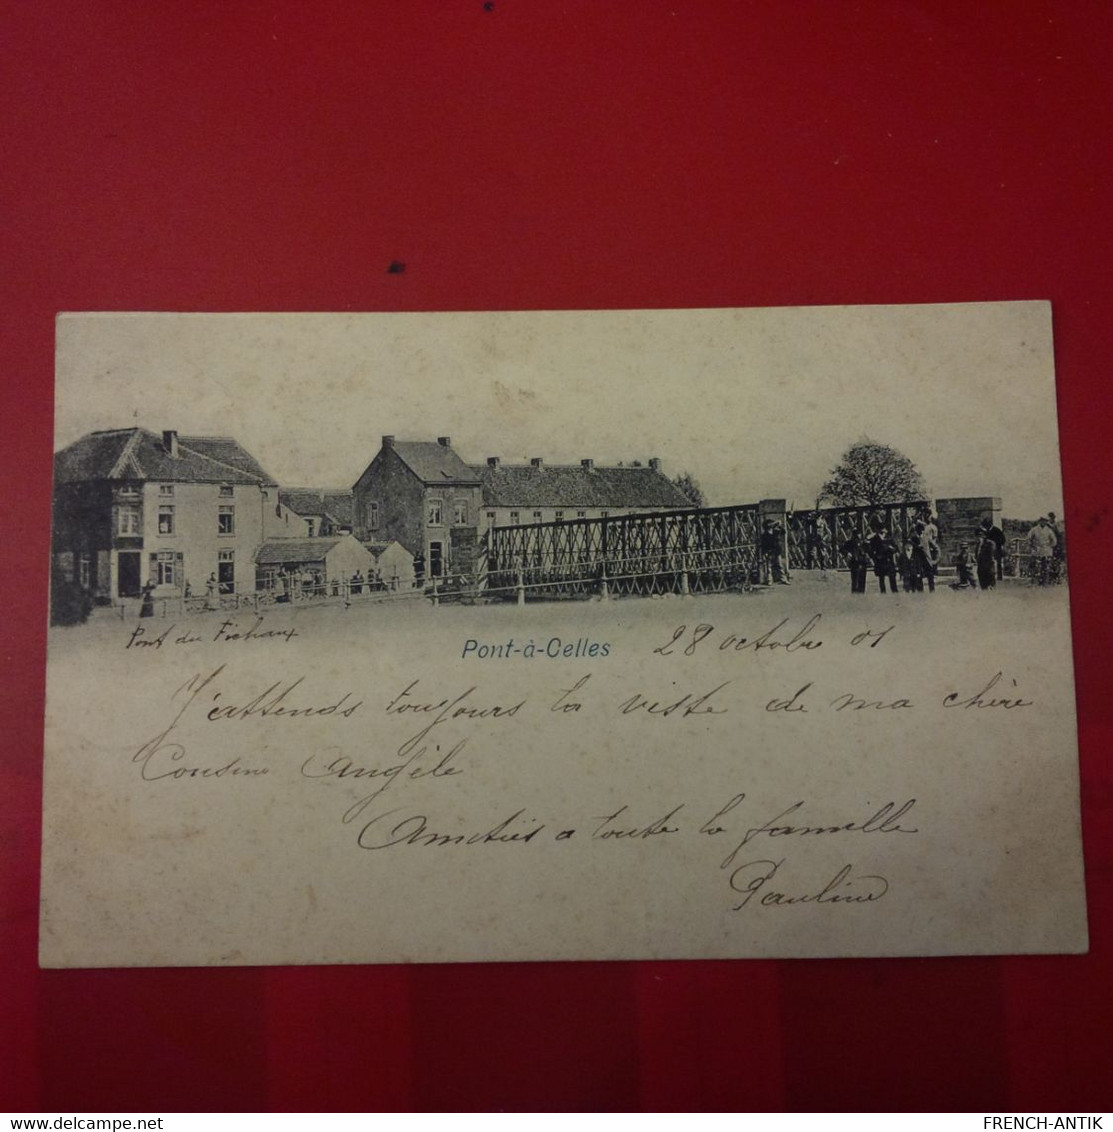 Pont du Fichaux
Pont-à-Celles
28 octobre 01
J'attends toujours la visite de ma chère
Cousine Angèle
Amitiés a toute la famille
Pauline
delcampe.net
FRENCH-ANTIK